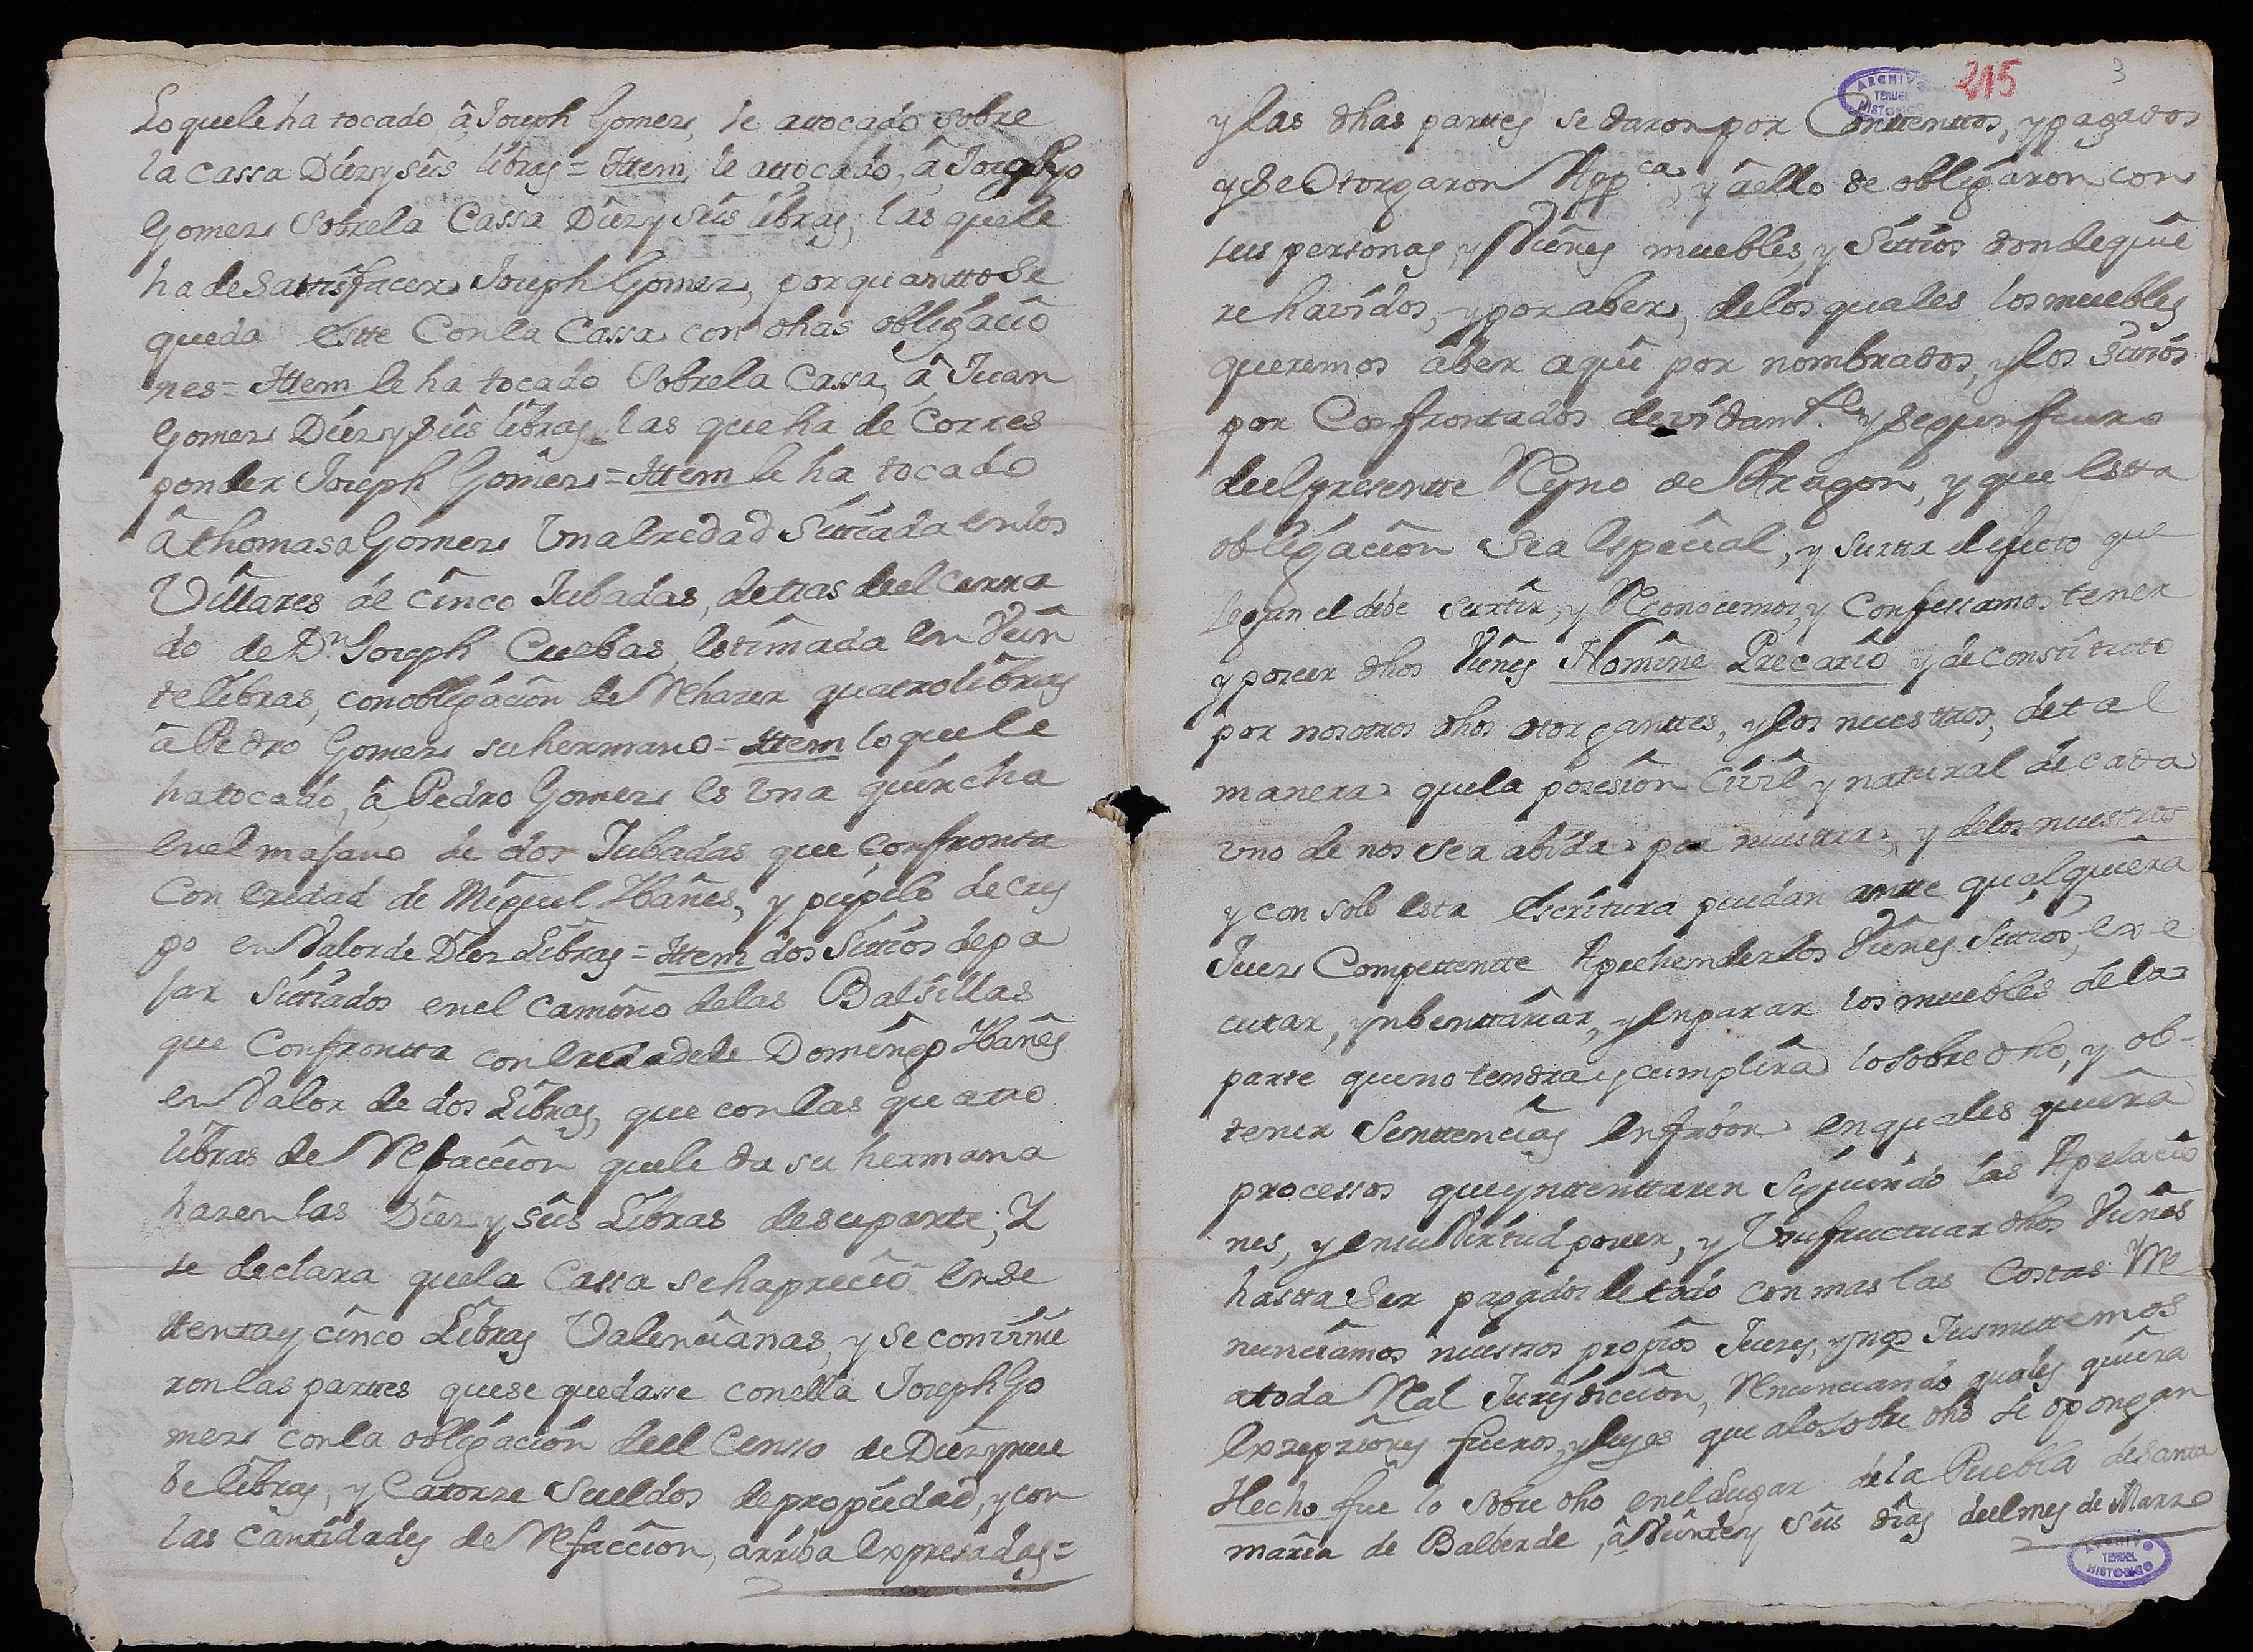 Lo quele ha tocado, â Joseph Gomez, le atocado sobre
la cassa Diezyseîs libras = Ittem, le attocado, â Jorge Go
Gomez Sobrela Cassa Diezy Seîs libras, las quele
ha de Sattisfacer Joseph Gomez, por quantto Se
queda Estte Con la Cassa con dhas obligâcio
nes = Ittem le ha tocado Sobrela Cassa, â Juan
Gomez Diezy Seîs libras las que ha de Corres
ponder Joseph Gomez = Ittem le ha tocado
â thomasa Gomez Una Eredad Sittiada en los
Villares de cînco Jubadas, detras deel Cerra
do de Dn. Joseph Cuebas, Estîmada En Veîn
te libras, con obligâcion de Rehazer quatro libras
â Pedro Gomez su hermano = Ittem lo quele
ha tocado, â Pedro Gomez Es Una guércha
En el masano de dos Jubadas que Confronta
Con Eredad de Mîguel Ybañes, y pupîlo de Cres
po en Valor de Diez Libras = Ittem dos Sittios de pa
jar Sittiados en el Camîno de las Balsillas
que Confrontta con Eredad de Domîngo Ybañes
en Valor de dos Libras, que con las quatro
libras de Refaccîon quele da su hermana
hazen las Diezy seîs Libras de su partte; Y
se declara quela Cassa se ha precîo En Se
ttenta y cînco Libras Valencîanas, y se convînie
ron las parttes que se quedasse con ella Joseph Go
mez con la obligâcion deel Censo de Diez y nue
be libras, y Catorze Sueldos de propîedad, y con
las Cantidades de Refaccîon, arriba Expresadas =
ARCHIVO
TERUEL
HISTORICO
215
3
y las dhas parttes se daron por Conttenttos, y pagados
y Se Otorgaron App.ca, y â ello se obligâron con
sus personas, y Viênes muebles, y Sittîos donde quîe
re havîdos, y por aber, de los quales los muebles
queremos âber aquî por nombrados, y los Sittîos
por Confrontados devîdamte. y Segun fuero
deel presentte Reyno de Aragon, y que Estta
obligâcion Sea Especîal, y Surtta el efecto que
Segun el debe Surtîr, y Reconocemos, y Confessamos tener
y poseer dhos Viênes Nomîne Precarîo y de constîtuto
por nosotros dhos otorgânttes, y los nuestros, de tal
manera quela posesîon Cîvîl y natural de cada
uno de nos sea abîda por nuestra, y de los nuestros
y con solo Esta Escrîtura puedan antte qualquîera
Juez Competentte Aprehender los Viênes Sittîos, Exe
cutar, ynbenttarîar, y Enparar los muebles de la
parte que no tendra y cumplîra lo sobre dho, y ob-
tener Senttencîas En favor En quales quîera
processos que ynttenttaren Siguîendo las Apelacîo
nes, y En su Virtud poseer, y Usufructuar dhos Viênes
hastta Ser pagados de todo con mas las Costas Y Re
nuncîamos nuestros propîos Juezes, y nos Jusmettemos
a toda Real Jurîsdiccîon, Renuncîando quales quîera
Exzepcîones fueros, y leyes que a lo sobre dho se opongan
Hecho fue lo sobre dho en el Lugar de la Puebla de Santa
marîa de Balberde, â Veînte y Seîs dîas deel mes de Marzo
ARCHIVO
TERUEL
HISTORICO